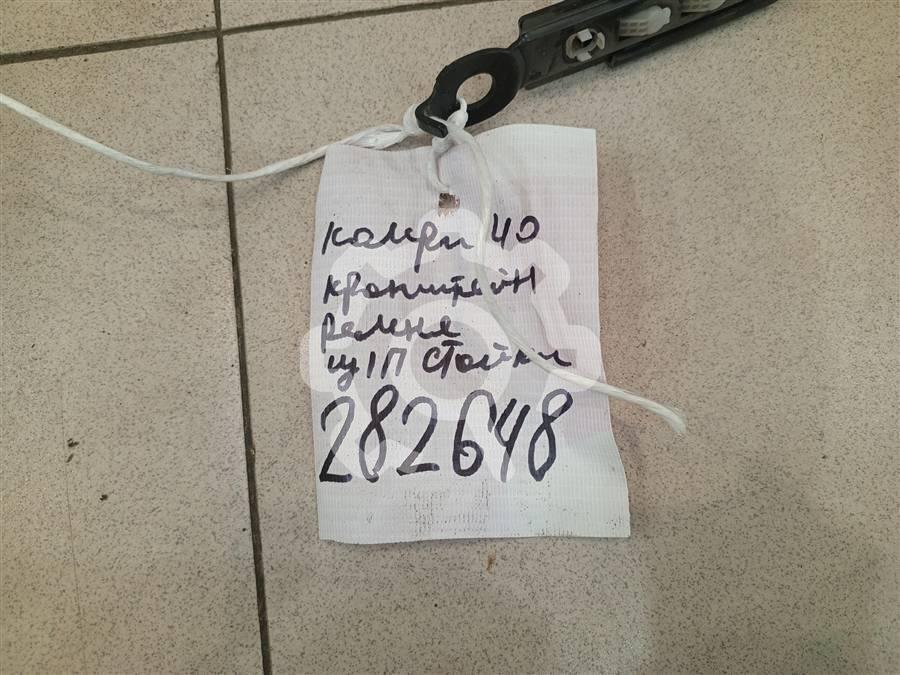 камри 40
кронштейн
ремня
ц/П стойки
282648